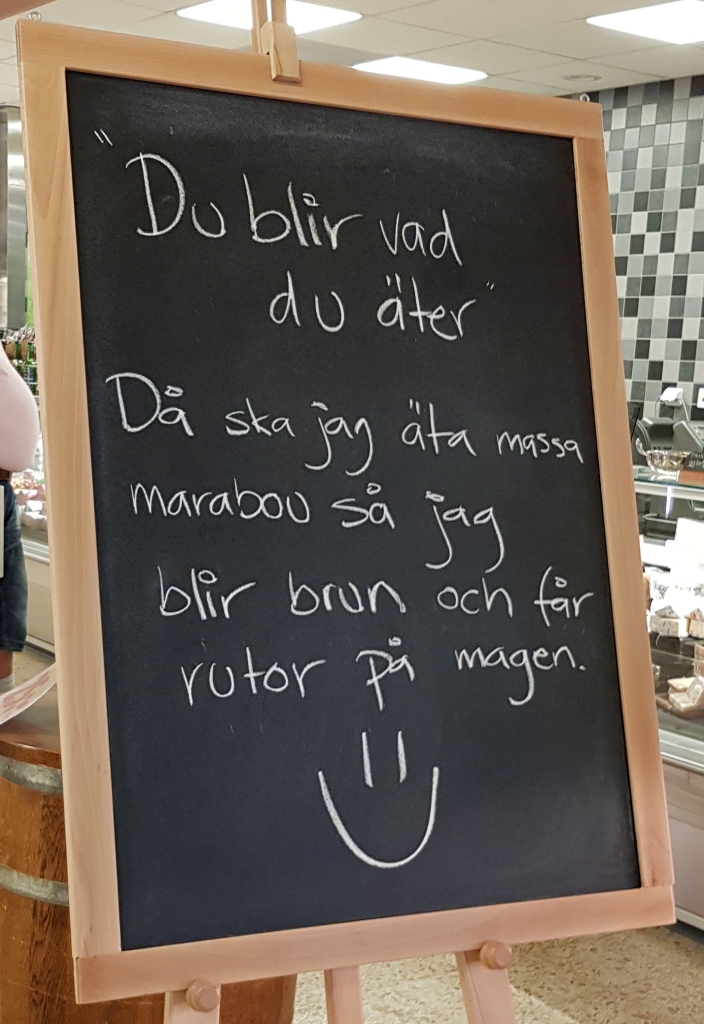 "Du blir vad
du äter"
Då ska jag äta massa
marabou så jag
blir brun och får
rutor på magen.